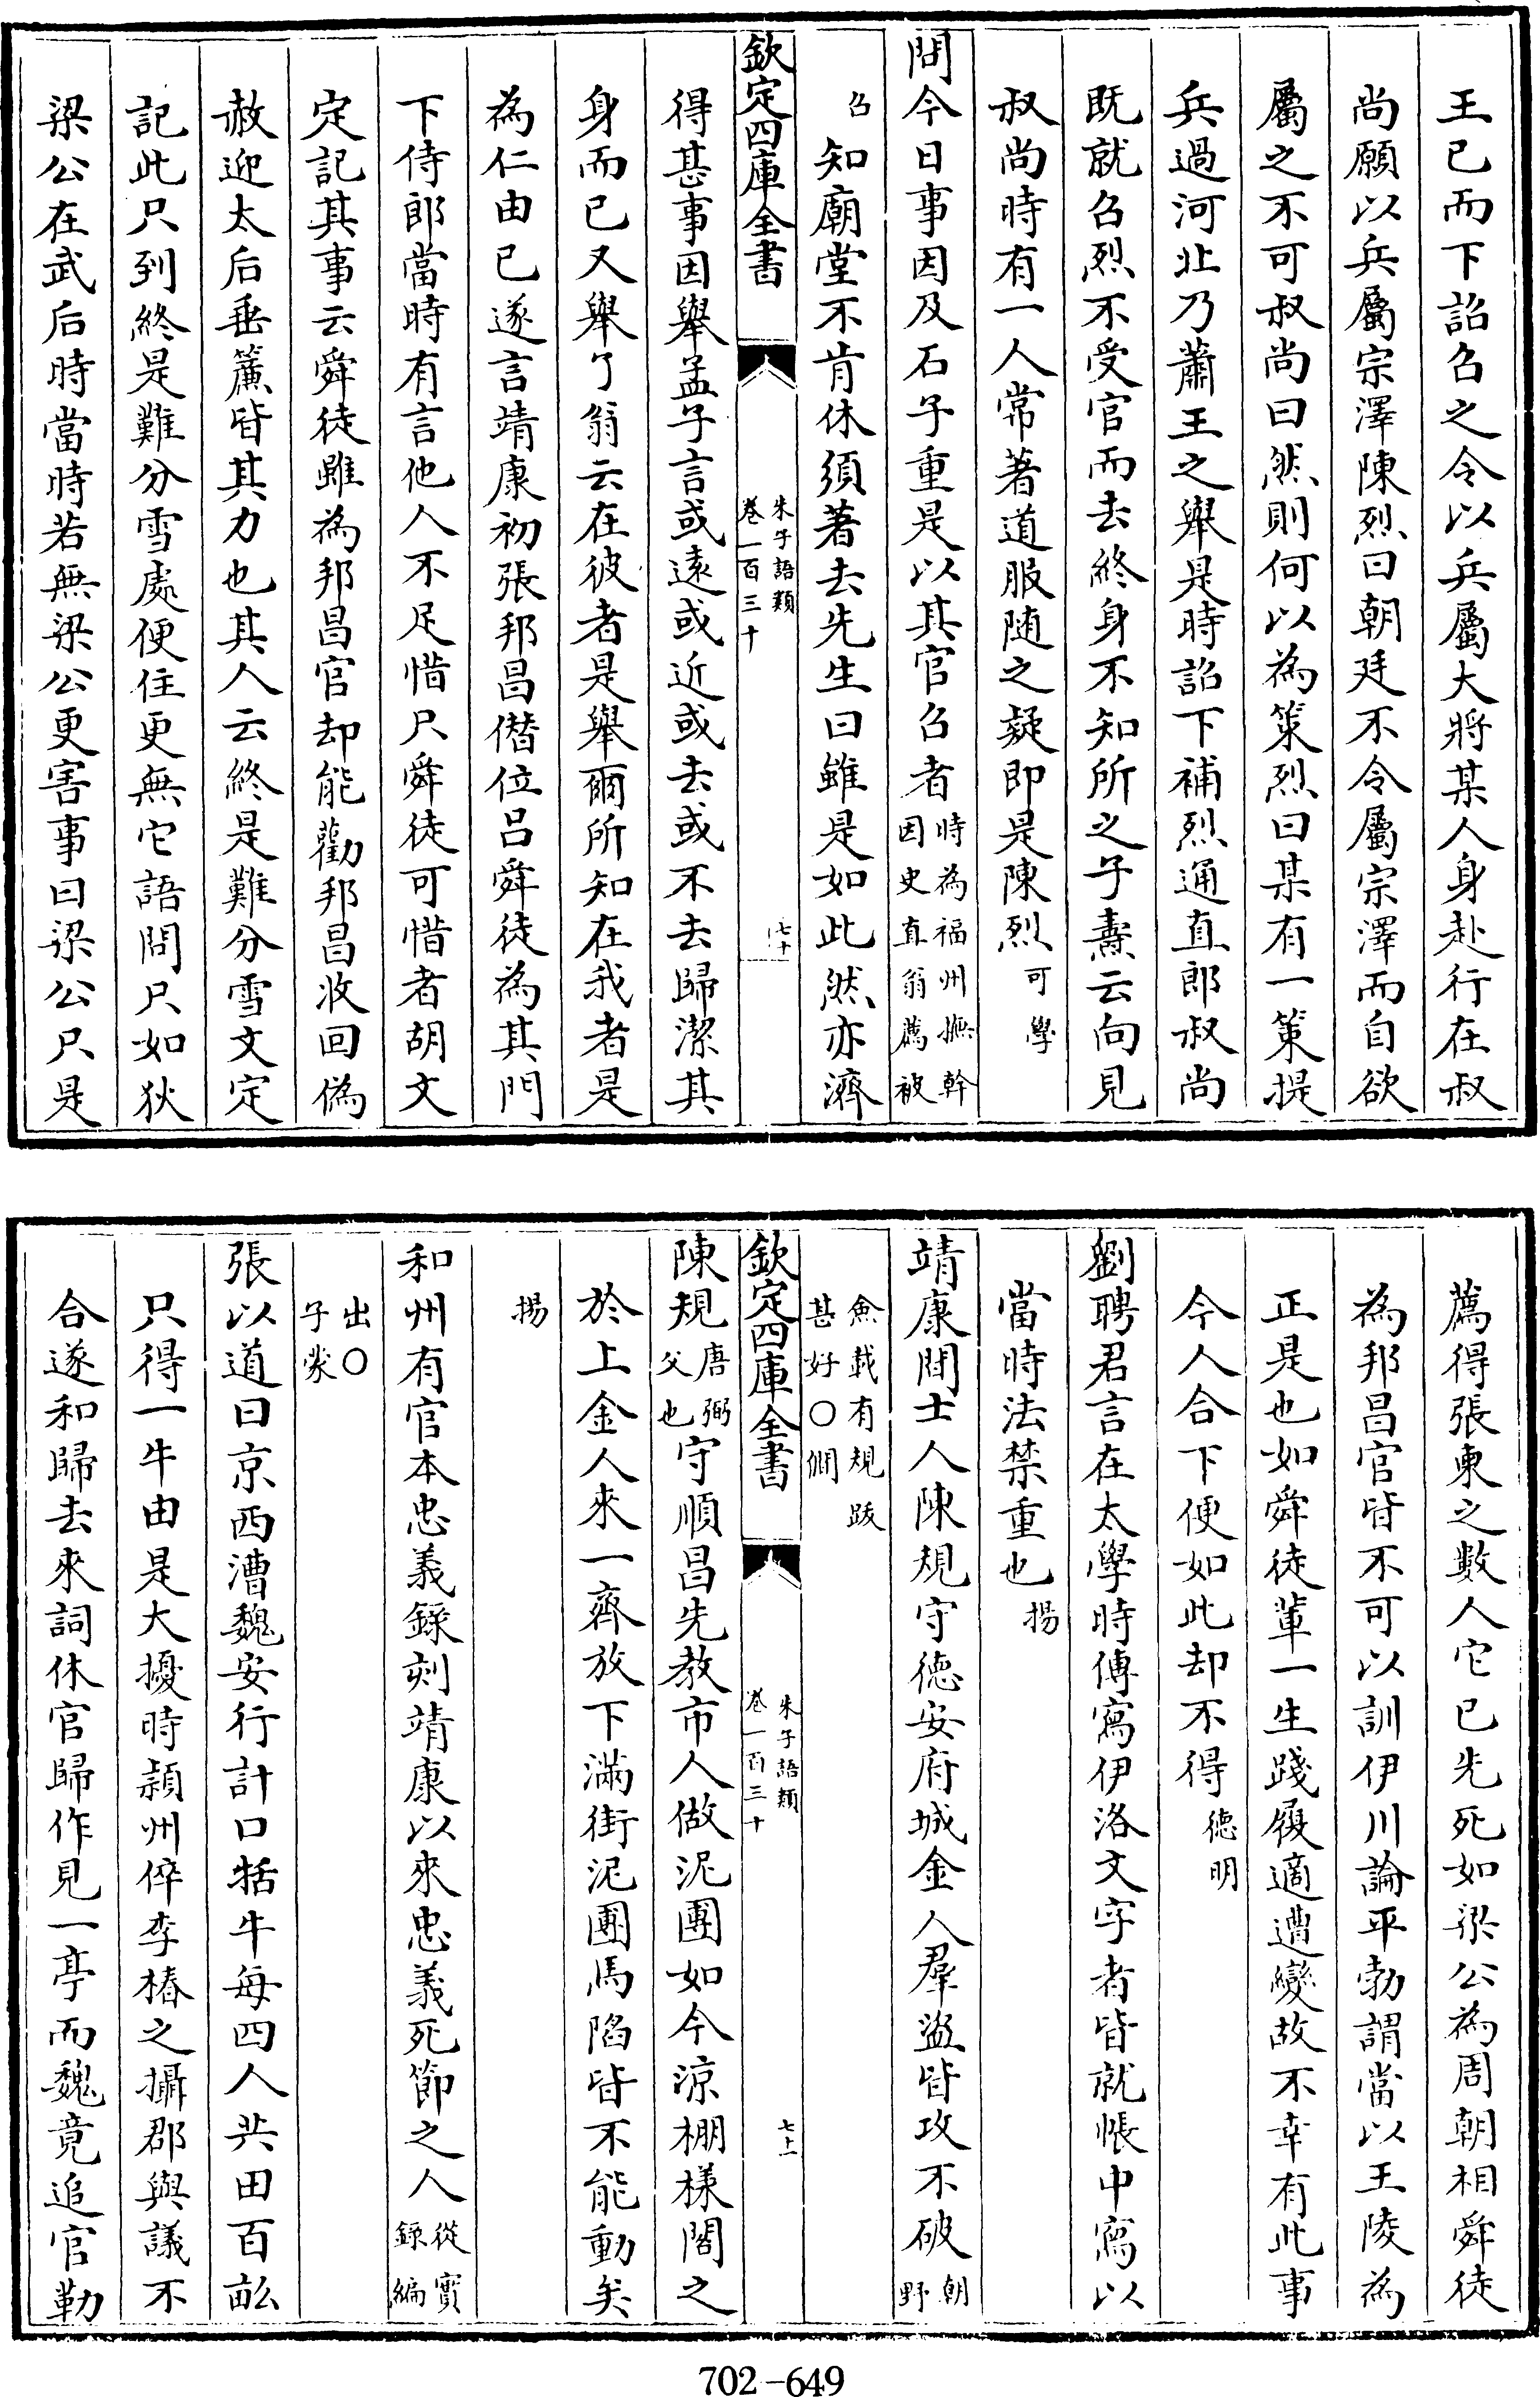 王已而下詔召之令以兵屬大將某人身赴行在叔
尚願以兵屬宗澤陳烈曰朝廷不令屬宗澤而自欲
屬之不可叔尚曰然則何以為策烈曰某有一策提
兵過河北乃蕭王之舉是時詔下補烈通直郎叔尚
既就召烈不受官而去終身不知所之子燾云向見
叔尚時有一人常著道服随之疑即是陳烈可學
問今日事因及石子重是以其官召者時為福州撫幹因史直翁薦被
召知廟堂不肯休須著去先生曰雖是如此然亦濟
欽定四庫全書 朱子語類卷一百三十 七十
得甚事因舉孟子言或遠或近或去或不去歸潔其
身而已又舉了翁云在彼者是舉爾所知在我者是
為仁由己遂言靖康初張邦昌僭位呂舜徒為其門
下侍郎當時有言他人不足惜只舜徒可惜者胡文
定記其事云舜徒雖為邦昌官却能勸邦昌收回偽
赦迎太后垂簾皆其力也其人云終是難分雪文定
記此只到終是難分雪處便住更無它語問只如狄
梁公在武后時當時若無梁公更害事曰梁公只是
薦得張柬之數人它已先死如梁公為周朝相舜徒
為邦昌官皆不可以訓伊川論平勃謂當以王陵為
正是也如舜徒輩一生踐履適遭變故不幸有此事
今人合下便如此却不得德明
劉聘君言在太學時傳寫伊洛文字者皆就帳中寫以
當時法禁重也揚
靖康間士人陳規守德安府城金人羣盜皆攻不破朝野
僉載有規跋甚好○僩
欽定四庫全書 朱子語類卷一百三十 七十一
陳規唐弼父也守順昌先教市人做泥團如今涼棚様閣之
於上金人來一齊放下滿街泥團馬陷皆不能動矣
揚
和州有官本忠義録刻靖康以來忠義死節之人從實録編
出○子蒙
張以道曰京西漕魏安行計口括牛每四人共田百畝
只得一牛由是大擾時潁州倅李椿之攝郡與議不
合遂和歸去來詞休官歸作見一亭而魏竟追官勒
702-649